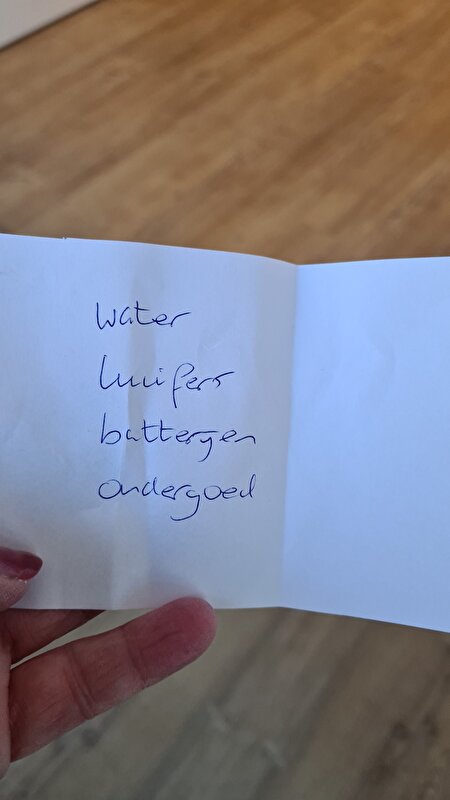 water
lucifers
batteryen
ondergoed